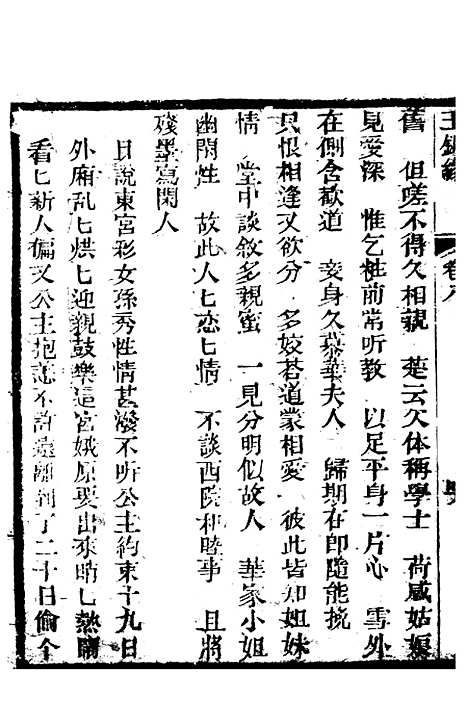 玉釧緣 卷八
舊　但嗟不得久相親　楚云欠体稱學士　荷感姑娘
見愛深　惟乞粧前常听教　以足平身一片心　雪外
在側含歡道　妾身久慕華夫人　歸期在即隨能挽
只恨相逢又欲分　多姣答道蒙相愛　彼此皆知姐妹
情　堂中談敘多親蜜　一見分明似故人　華家小姐
幽閑性　故此人七恋七情　不談西院和睦事　且將
殘墨寫閑人
日說東宮彩女孫秀性情甚潑不听公主約束十九日
外廂乱七烘七迎親鼓樂這宮娥原要出來睄七熱鬧
看七新人偏又公主抱恙不許遠離到了二十日偷个